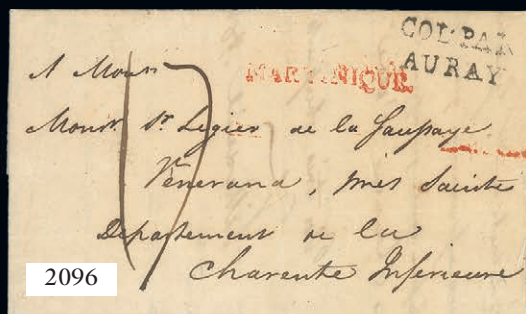 COL. PAR
AURAY
MARTINIQUE.
A Monsr
Monsr St Legier de la Saupaye
Vénérand, près Sainte
Departement de la
Charente Inferieure
17
2096